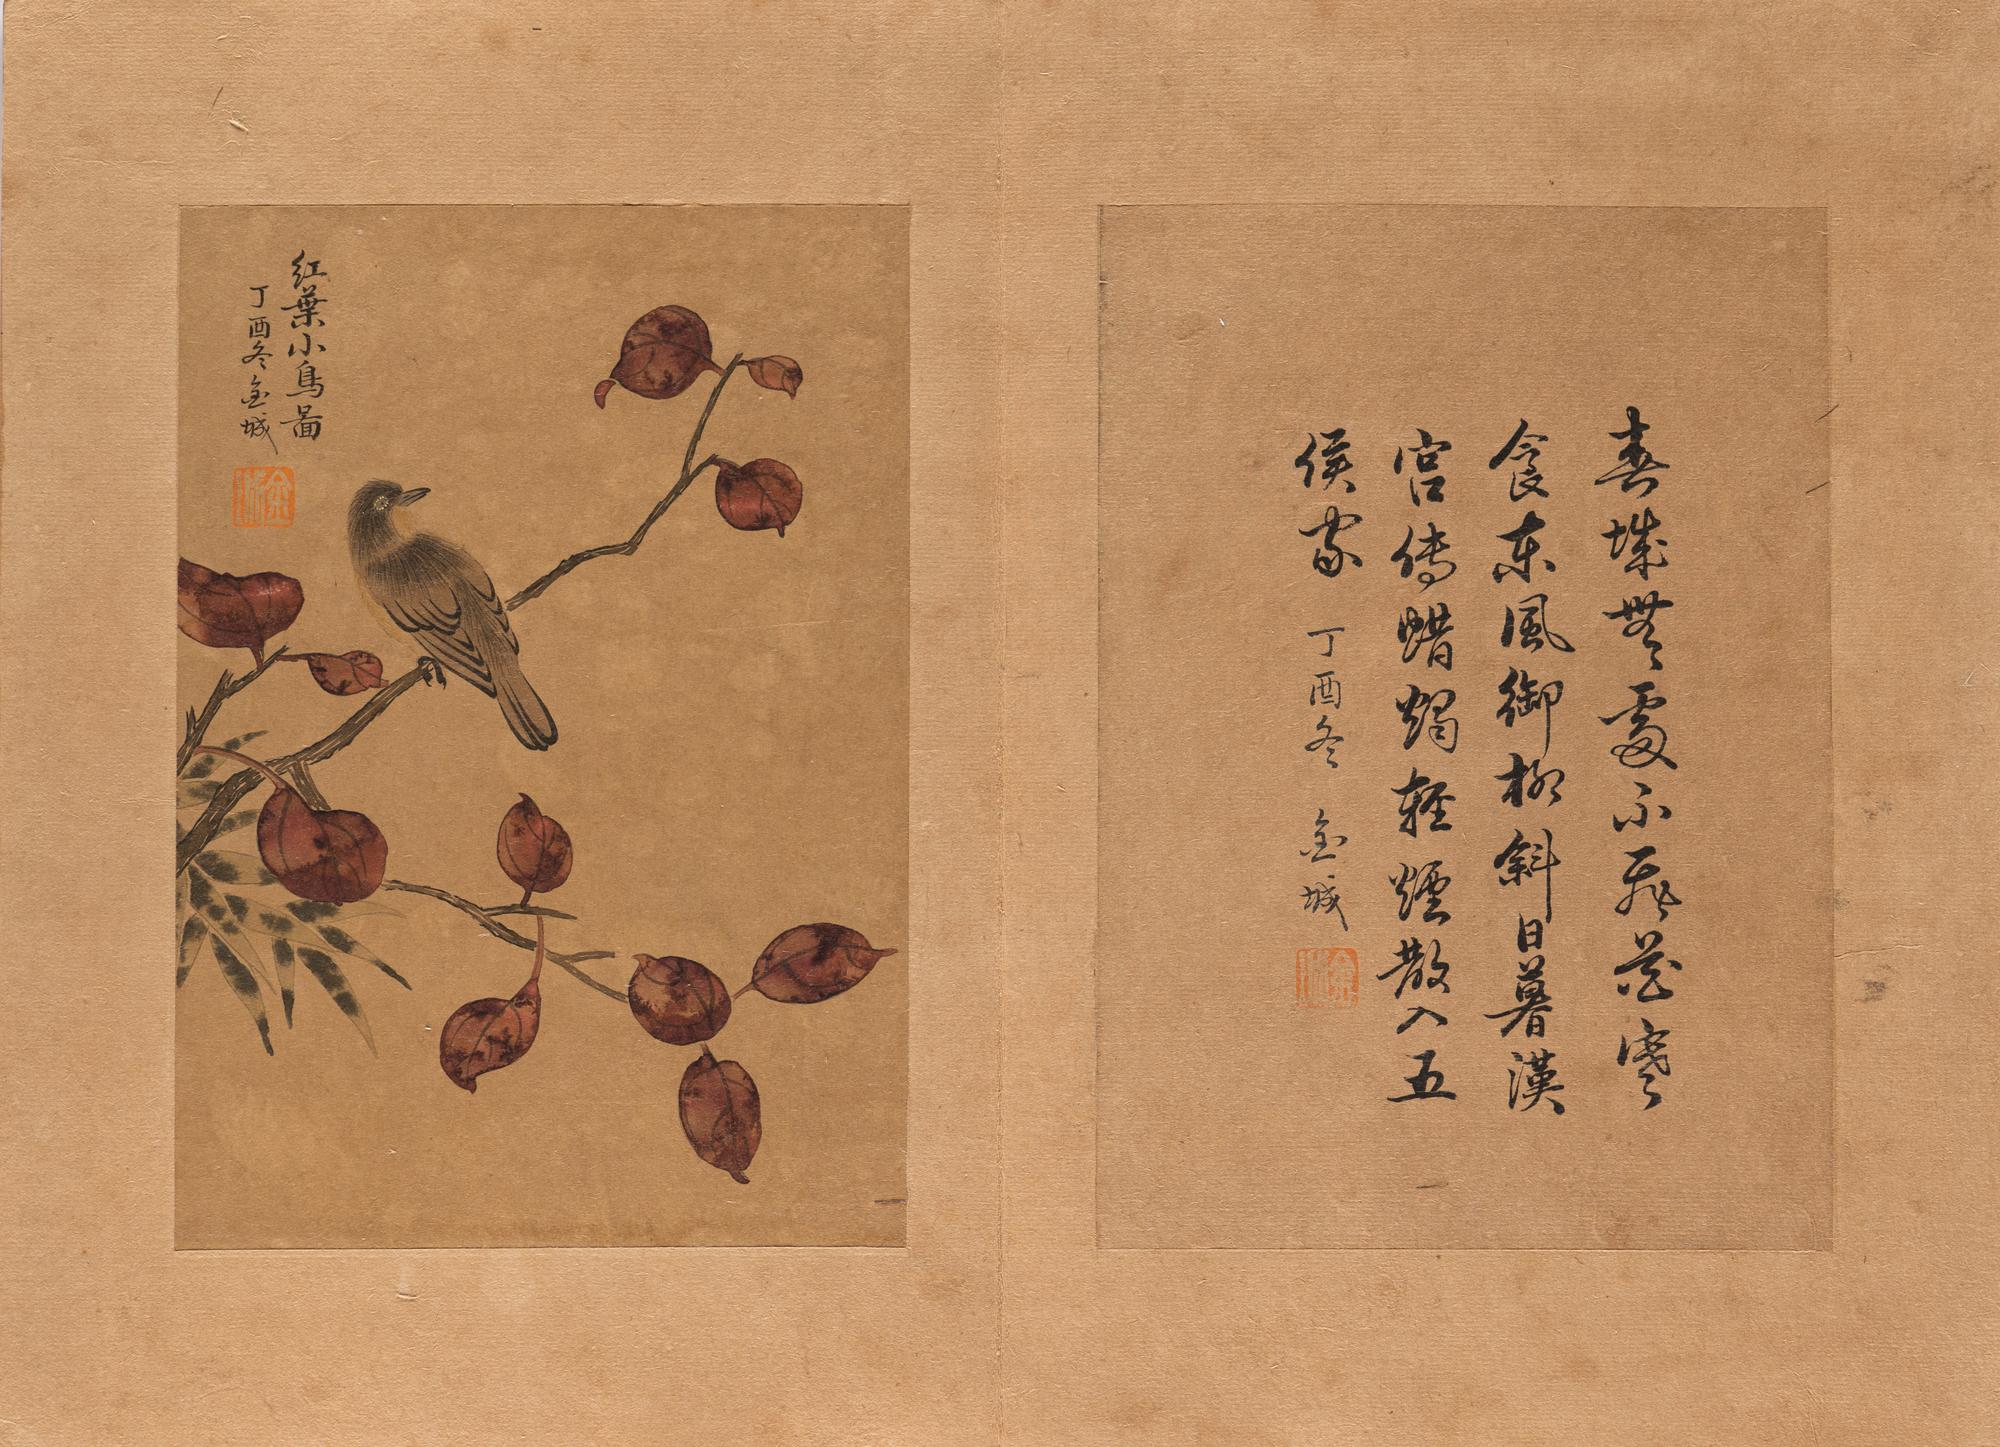 春城無處不飛花寒
食東風御柳斜日暮漢
宮傳蠟燭輕煙散入五
侯家
丁酉冬 金城
紅葉小鳥圖
丁酉冬金城